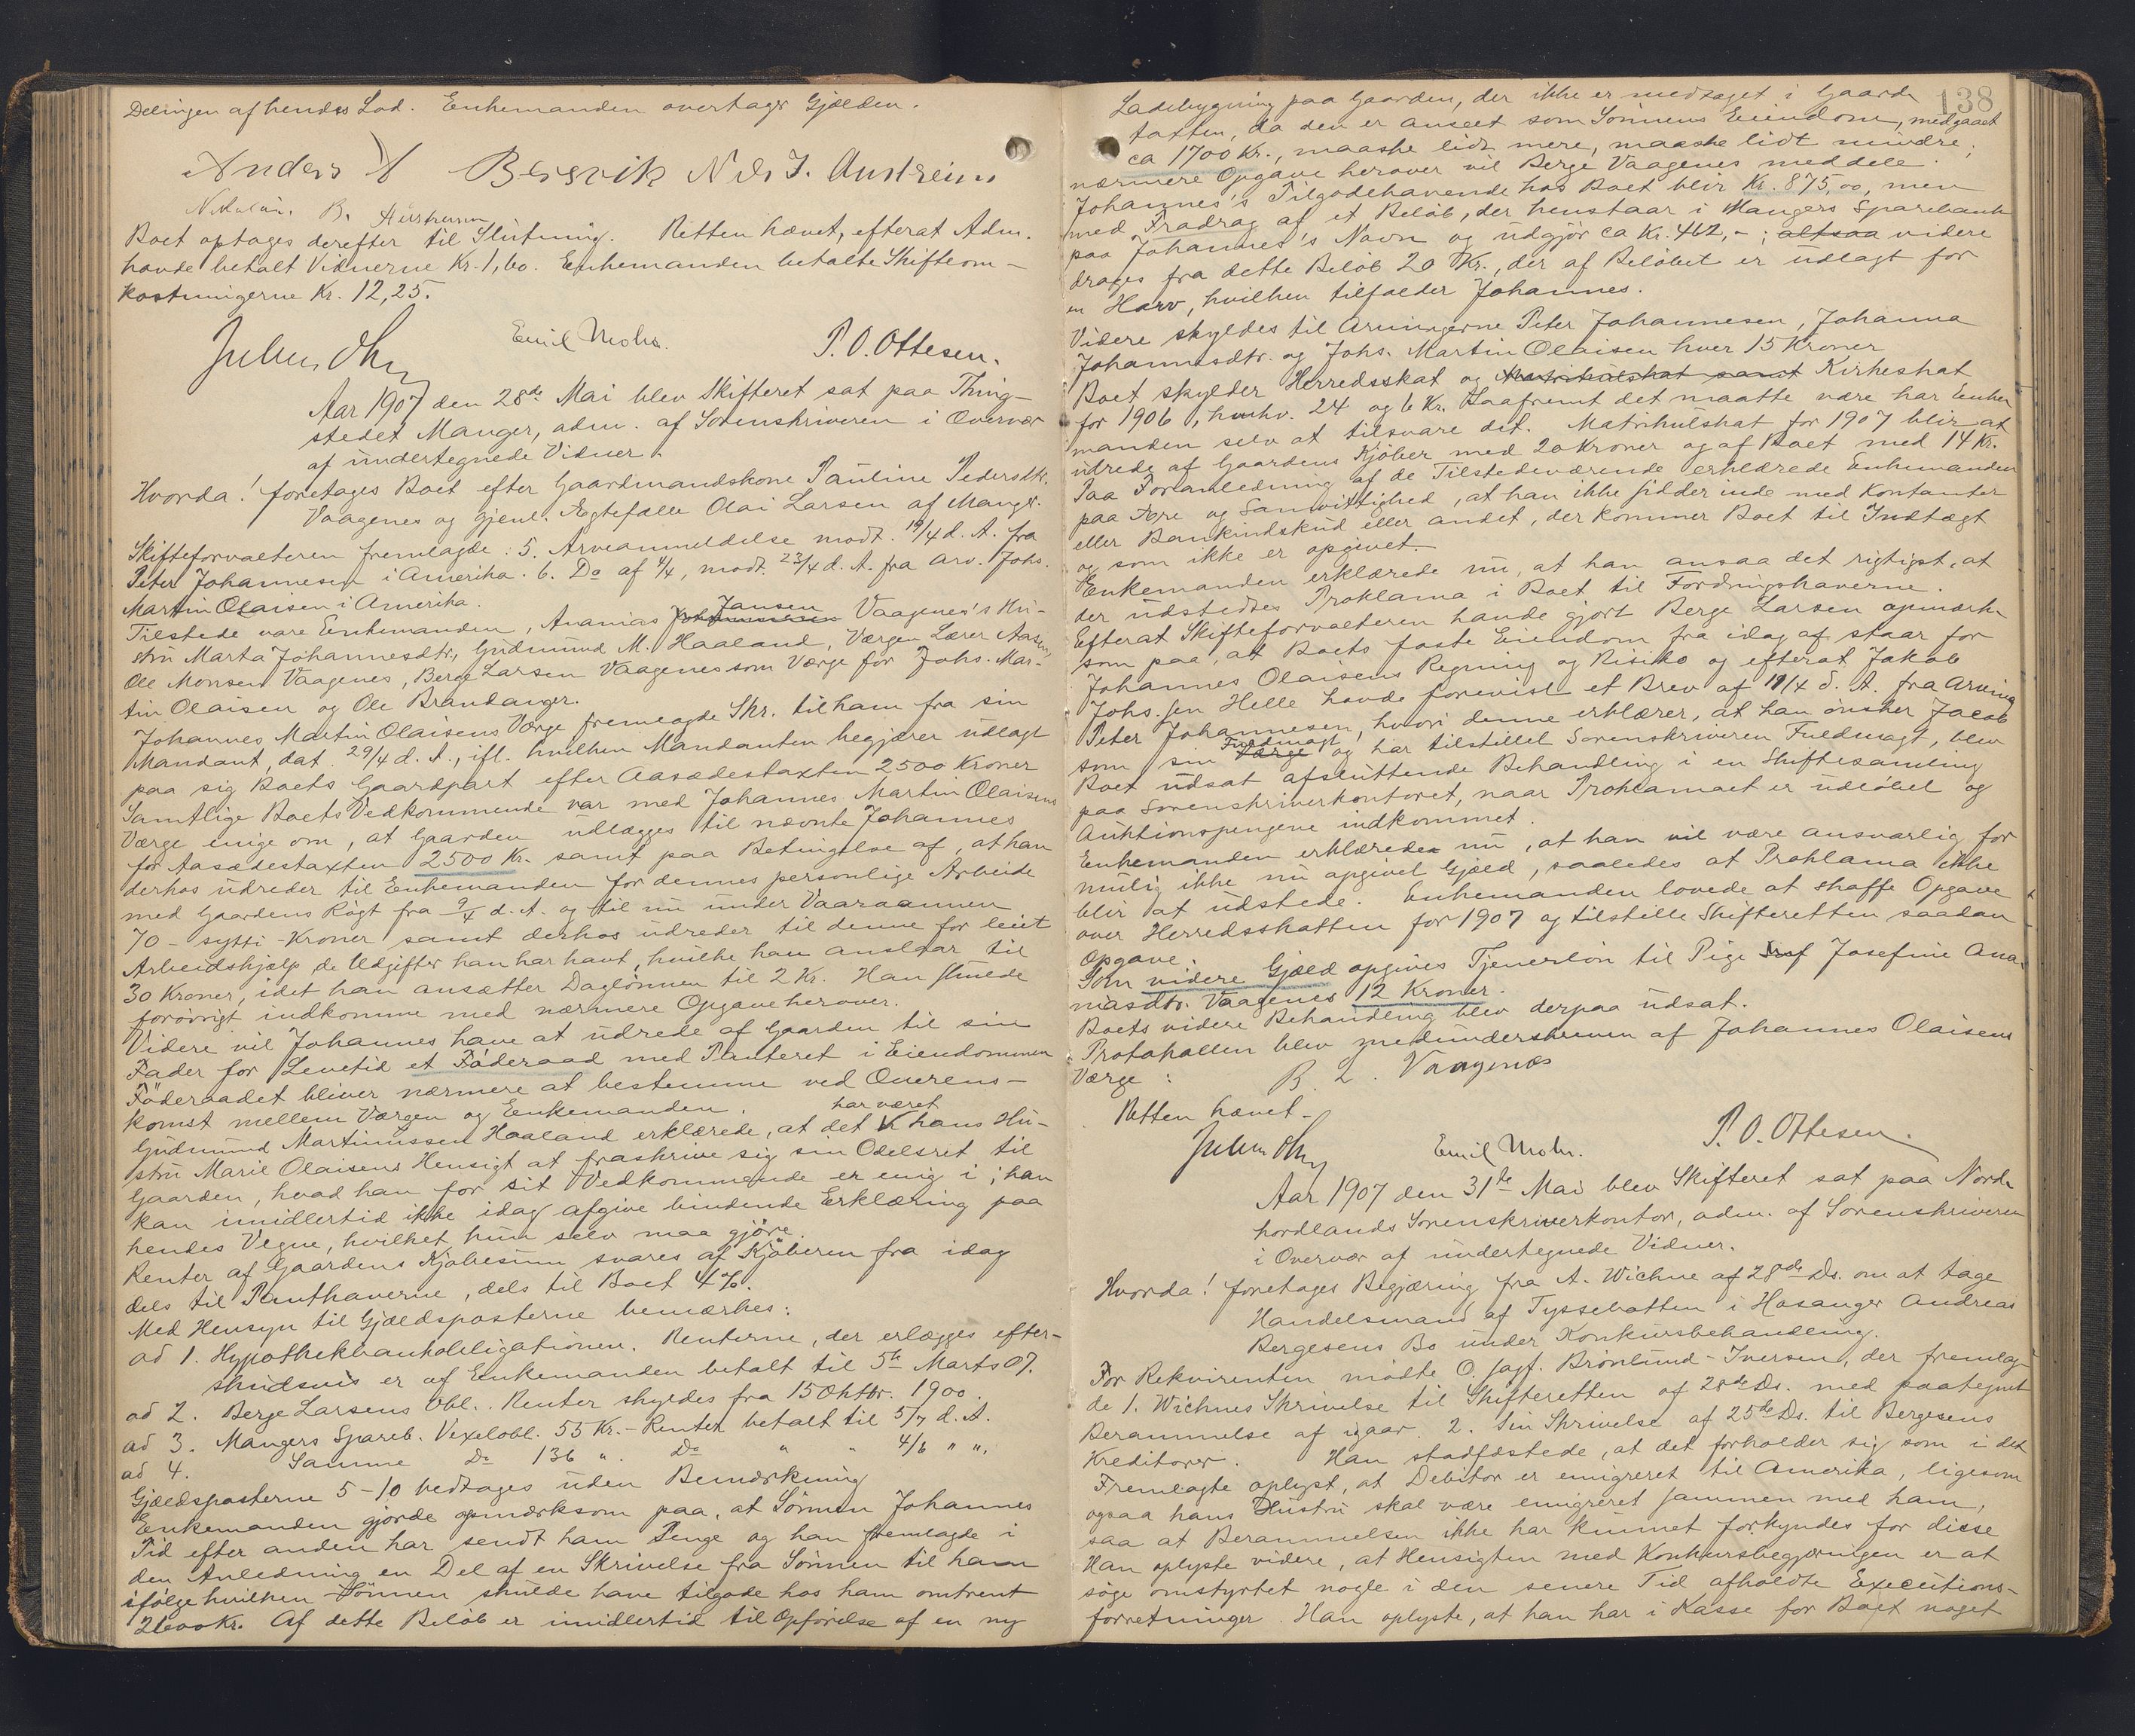 Delingen af hendes Lod. Enkemanden overtager Gjælden.
Anders A Bersvik Nils J. Austreim
Nikolai. B.
Boet optages derefter til Slutning. Retten hævet, efterat Adm.
havde betalt Vidnerne Kr. 1,60. Enkemanden betalte Skifteom-
kostningerne Kr. 12,25.
Emil Mohr. P. O. Ottesen.
Aar 1907 den 28de Mai blev Skifteret sat paa Thing-
stedet Manger, adm. af Sorenskriveren i Overvær
af undertegnede Vidner.
Hvorda! foretages Boet efter Gaardmandskone Pauline Pedersdtr.
Vaagenes og gjenl. Ægtefælle Olai Larsen af Manger.
Skifteforvalteren fremlagde: 5. Arveanmeldelse modt. 19/4 d. A. fra
Peter Johannesen i Amerika. 6. Do af 4/4, modt. 23/4 d. A. fra Arv. Johs.
Martin Olaisen i Amerika.
Tilstede vare Enkemanden, Ananias Jansen Vaagenes's Hu-
stru Marta Johannesdtr, Gudmund M. Haaland, Værgen Lærer Aasen,
Ole Monsen Vaagenes, Berge Larsen Vaagenes som Værge for Johs. Mar-
tin Olaisen og Ole Brandanger.
Johannes Martin Olaisens Værge fremlagde Skr. til ham fra sin
Mandant, dat. 29/4 d. A., ifl. hvilken Mandanten begjærer udlagt
paa sig Boets Gaardpart efter Aasædestaxten 2500 Kroner
Samtlige Boets Vedkommende var med Johannes Martin Olaisens
Værge enige om, at Gaarden udlægges til nævnte Johannes
for Aasædestaxten 2500 Kr. samt paa Betingelse af, at han
derhos udreder til Enkemanden for dennes personlige Arbeide
med Gaardens Røgt fra 9/4 d. A. og til nu under Vaaraannen
70 - sytti - Kroner samt derhos udreder til denne for leiet
Arbeidshjælp de Udgifter han har havt, hvilke han anslaar til
30 Kroner, idet han ansætter Daglønnen til 2 Kr. Han skulde
forøvrigt indkomme med nærmere Opgave herover.
Videre vil Johannes have at udrede af Gaarden til sin
Fader for Levetid et Føderaad med Panteret i Eiendommen
Føderaadet bliver nærmere at bestemme ved Overens-
komst mellem Værgen og Enkemanden.
Gudmund Martinussen Haaland erklærede, at det har været hans Hu-
stru Marie Olaisens Hensigt at fraskrive sig sin Odelsret til
Gaarden, hvad han for sit Vedkommende er enig i; han
kan imidlertid ikke idag afgive bindende Erklæring paa
hendes Vegne, hvilket hun selv maa gjøre.
Renter af Gaardens Kjøbesum svares af Kjøberen fra idag
dels til Panthaverne, dels til Boet 4 %.
Med Hensyn til Gjældsposterne bemærkes:
ad 1. Hypothekbankobligationen. Renterne, der erlægges efter-
skudsvis er af Enkemanden betalt til 5te Marts 07.
ad 2. Berge Larsens Obl. Renter skyldes fra 15 Oktbr. 1900.
ad 3. Mangers Spareb. Vexelobl. 55 Kr. - Renter betalt til 5/7 d. A.
ad 4. Samme Do 136 " . Do " " 4/6 " ".
Gjældsposterne 5-10 vedtages uden Bemærkning
Enkemanden gjorde opmærksom paa, at Sønnen Johannes
Tid efter anden har sendt ham Penge og han fremlagde i
den Anledning en Del af en Skrivelse fra Sønnen til ham
ifølge hvilken Sønnen skulde have tilgode hos ham omtrent
2600 Kr. Af dette Beløb er imidlertid til Opførelse af en ny
138
Ladebygning paa Gaarden, der ikke er medtaget i Gaards
taxten, da den er anseet som Sønnens Eiendom, medgaaet
ca 1700 Kr., maaske lidt mere, maaske lidt mindre;
nærmere Opgave herover vil Berge Vaagenes meddele.
Johannes's Tilgodehavende hos Boet blir Kr. 875,00, men
med Fradrag af et Beløb, der henstaar i Mangers Sparebank
paa Johannes's Navn og udgjør ca Kr. 462,-; altsaa videre
drages fra dette Beløb 20 Kr., der af Beløbet er udlagt for
en Harv, hvilken tilfalder Johannes.
Videre skyldes til Arvingerne Peter Johannesen, Johanna
Johannesdtr. og Johs. Martin Olaisen hver 15 Kroner
Boet skylder Herredsskat og Matrikulskat samt Kirkeskat
for 1906, henhv. 24 og 6 Kr. Haafremt det maatte være har Enke
manden selv at tilsvare det. Matrikulskat for 1907 blir at
udrede af Gaardens Kjøber med 20 Kroner og af Boet med 14 Kr.
Paa Foranledning af de Tilstedeværende erklærede Enkemanden
paa Ære og Samvittighed, at han ikke sidder inde med Kontanter
eller Bankindskud eller andet, der kommer Boet til Indtægt
og som ikke er opgivet.
Enkemanden erklærede nu, at han ansaa det rigtigst, at
der udstedtes Proklama i Boet til Fordringshaverne.
Efterat Skifteforvalteren havde gjort Berge Larsen opmærk-
som paa, at Boets faste Eiendom fra idag af staar for
Johannes Olaisens Regning og Risiko og efterat Jakob
Johs.sen Helle havde forevist et Brev af 19/4 d. A. fra Arving
Peter Johannesen, hvori denne erklærer, at han ønsker Jacob
som sin Værge Fuldmagt og har tilstillet Sorenskriveren Fuldmagt, blev
Boet udsat afsluttende Behandling i en Skiftesamling
paa Sorenskriverkontoret, naar Proklamaet er udløbet og
Auktionspengene indkommet.
Enkemanden erklærede nu, at han vil være ansvarlig for
mulig ikke nu opgivet Gjæld, saaledes at Proklama ikke
blir at udstede. Enkemanden lovede at skaffe Opgave
over Herredsskatten for 1907 og tilstille Skifteretten saadan
Opgave.
Som videre Gjæld opgives Tjenerløn til Pige Josefine Ana-
niasdtr. Vaagenes 12 Kroner.
Boets videre Behandling blev derpaa udsat.
Protokollen blev medunderskreven af Johannes Olaisens
Værge: B. L. Vaagenes
Retten hævet.
Emil Mohr. P. O. Ottesen.
Aar 1907 den 31te Mai blev Skifteret sat paa Nord-
hordlands Sorenskriverkontor, adm. af Sorenskriveren
i Overvær af undertegnede Vidner.
Hvorda! foretages Begjæring fra A. Wichne af 28de Ds. om at tage
Handelsmand af Tyssebotten i Hosanger Andreas
Bergesens Bo under Konkursbehandling.
For Rekvirenten mødte O.sagf. Brønlund-Iversen, der fremlag-
de 1. Wichnes Skrivelse til Skifteretten af 28de Ds. med paategnet
Berammelse af igaar. 2. Sin Skrivelse af 25de Ds. til Bergesens
Kreditorer. Han stadfæstede, at det forholder sig som i det
Fremlagte oplyst, at Debitor er emigreret til Amerika, ligesom
ogsaa hans Hustru skal være emigreret sammen med ham,
saa at Berammelsen ikke har kunnet forkyndes for disse
Han oplyste videre, at Hensigten med Konkursbegjæringen er at
søge omstyrtet nogle i den senere Tid afholdte Executions-
forretninger. Han oplyste, at han har i Kasse for Boet noget